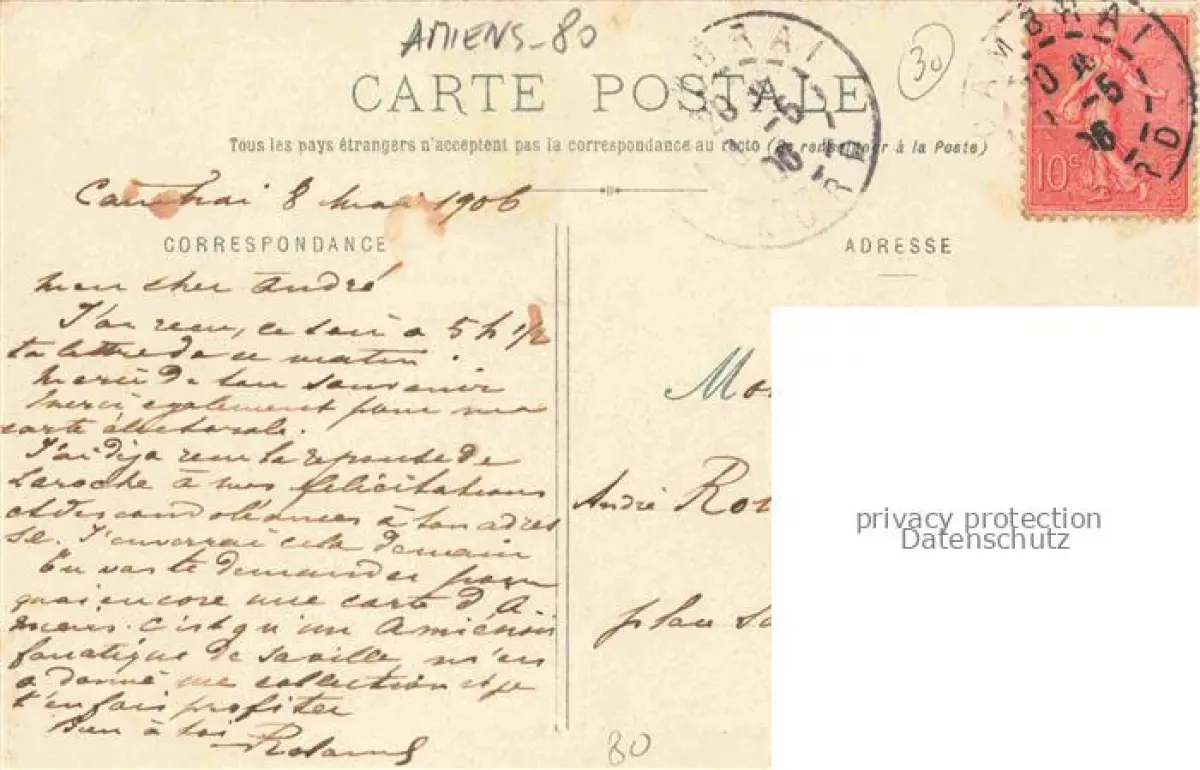 AMIENS-80
30
CARTE POSTALE
Tous les pays étrangers n'acceptent pas la correspondance au recto (Se renseigner à la Poste)
CAMBRAI
NORD
10c
Cambrai 8 mai 1906
CORRESPONDANCE
mon cher André
J'ai recu, ce soir a 5h 1/2
ta lettre de ce matin.
Merci de ton souvenir
Merci également pour ma
carte électorale.
J'ai dija recu la reponse de
Laroche à mes félicitations
et des condoléances à ton adres
se. J'enverrai cela demain
Tu vas te demander pour
quoi encore une carte d'A-
miens. C'est qu'un Amiénois
fanatique de sa ville, m'en
a donné une collection et je
t'en fais profiter
Bien à toi
Roland
ADRESSE
Mo
André Ro
place
privacy protection
Datenschutz
80